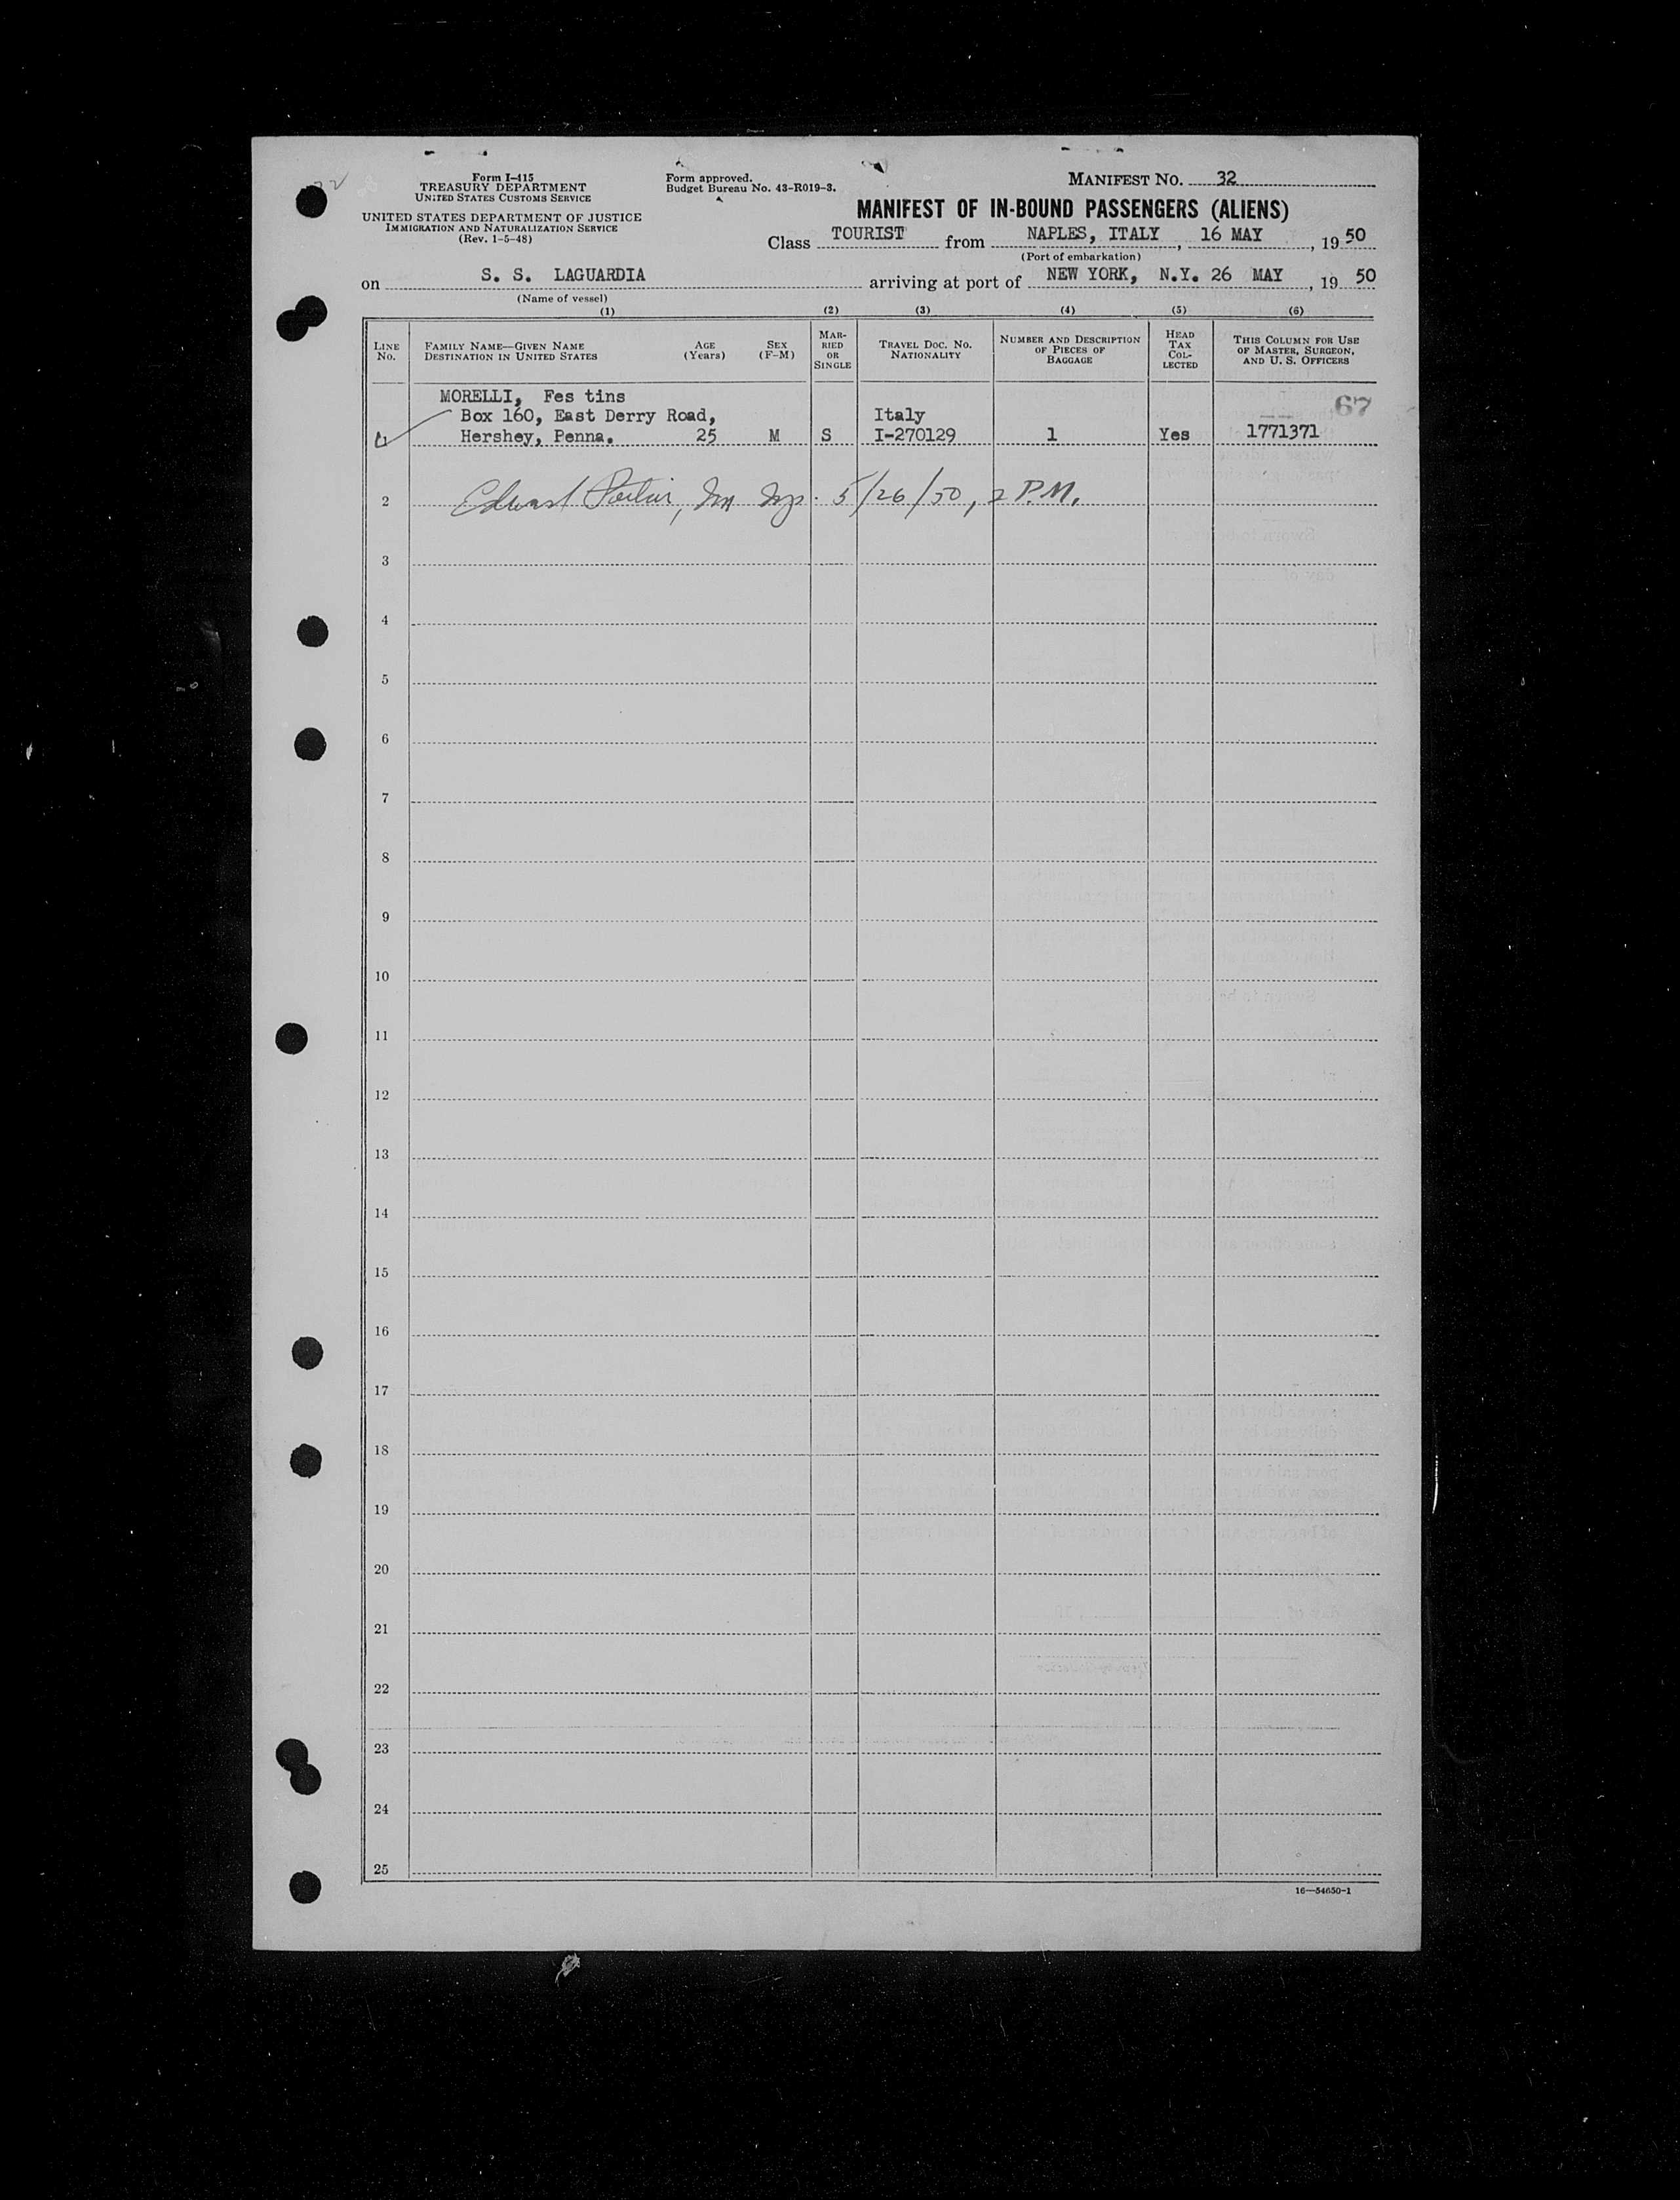 Form I-415
TREASURY DEPARTMENT
UNITED STATES CUSTOMS SERVICE
UNITED STATES DEPARTMENT OF JUSTICE
IMMIGRATION AND NATURALIZATION SERVICE
(Rev. 1-5-48)
Form approved.
Budget Bureau No. 43-R019-3.
MANIFEST NO. 32
MANIFEST OF IN-BOUND PASSENGERS (ALIENS)
Class TOURIST from NAPLES, ITALY, 16 MAY, 1950
(Port of embarkation)
on S. S. LAGUARDIA arriving at port of NEW YORK, N.Y. 26 MAY, 19 50
(Name of vessel)
(1) (2) (3) (4) (5) (6)
LINE No. FAMILY NAME—GIVEN NAME DESTINATION IN UNITED STATES AGE (Years) SEX (F-M) MARRIED OR SINGLE TRAVEL DOC. NO. NATIONALITY NUMBER AND DESCRIPTION OF PIECES OF BAGGAGE HEAD TAX COLLECTED THIS COLUMN FOR USE OF MASTER, SURGEON, AND U. S. OFFICERS
MORELLI, Fes tins
Box 160, East Derry Road, Italy 67
1 Hershey, Penna. 25 M S I-270129 1 Yes 1771371
2 Edward 5/26/50, 2 P.M.
3
4
5
6
7
8
9
10
11
12
13
14
15
16
17
18
19
20
21
22
23
24
25
16—54650-1